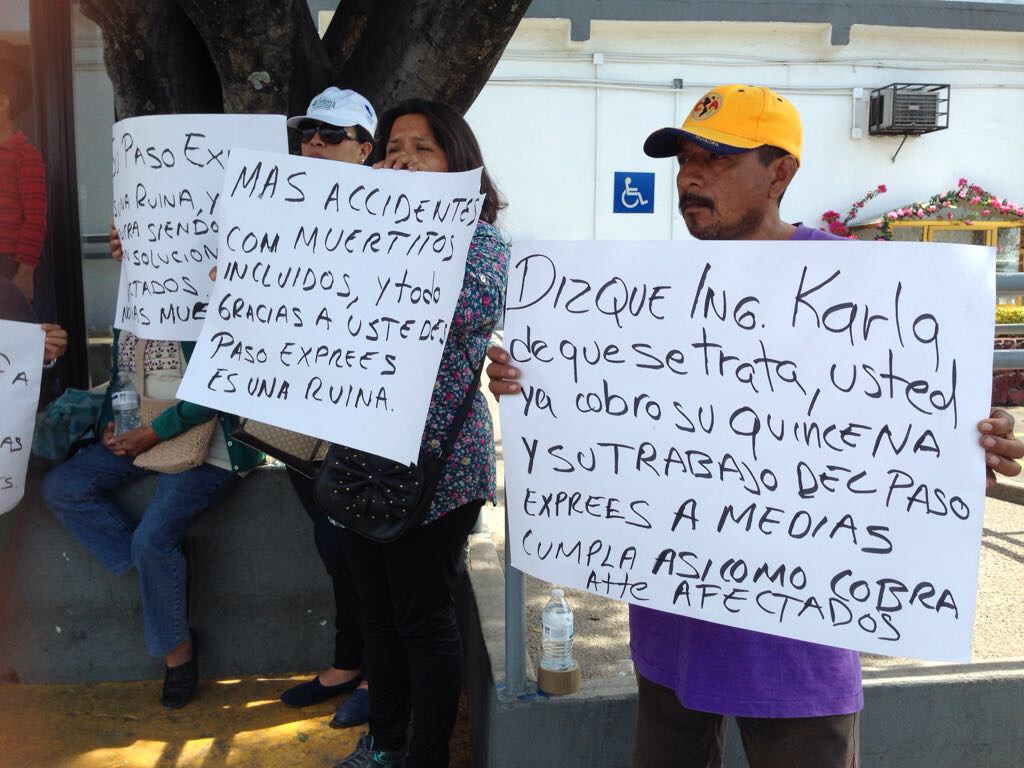 PASO EX
RUINA, Y
SIENDO
SOLUCION
MAS ACCIDENTES
CON MUERTITOS
INCLUIDOS, Y todo
GRACIAS A USTEDES
PASO EXPREES
ES UNA RUINA.
DIZQUE ING. Karla
de que se trata, usted
ya cobro su quiNCENA
Y SU TRABAJO DEL PASO
EXPREES A MEDIAS
CUMPLA ASI COMO COBRA
Atte AFECTADOS